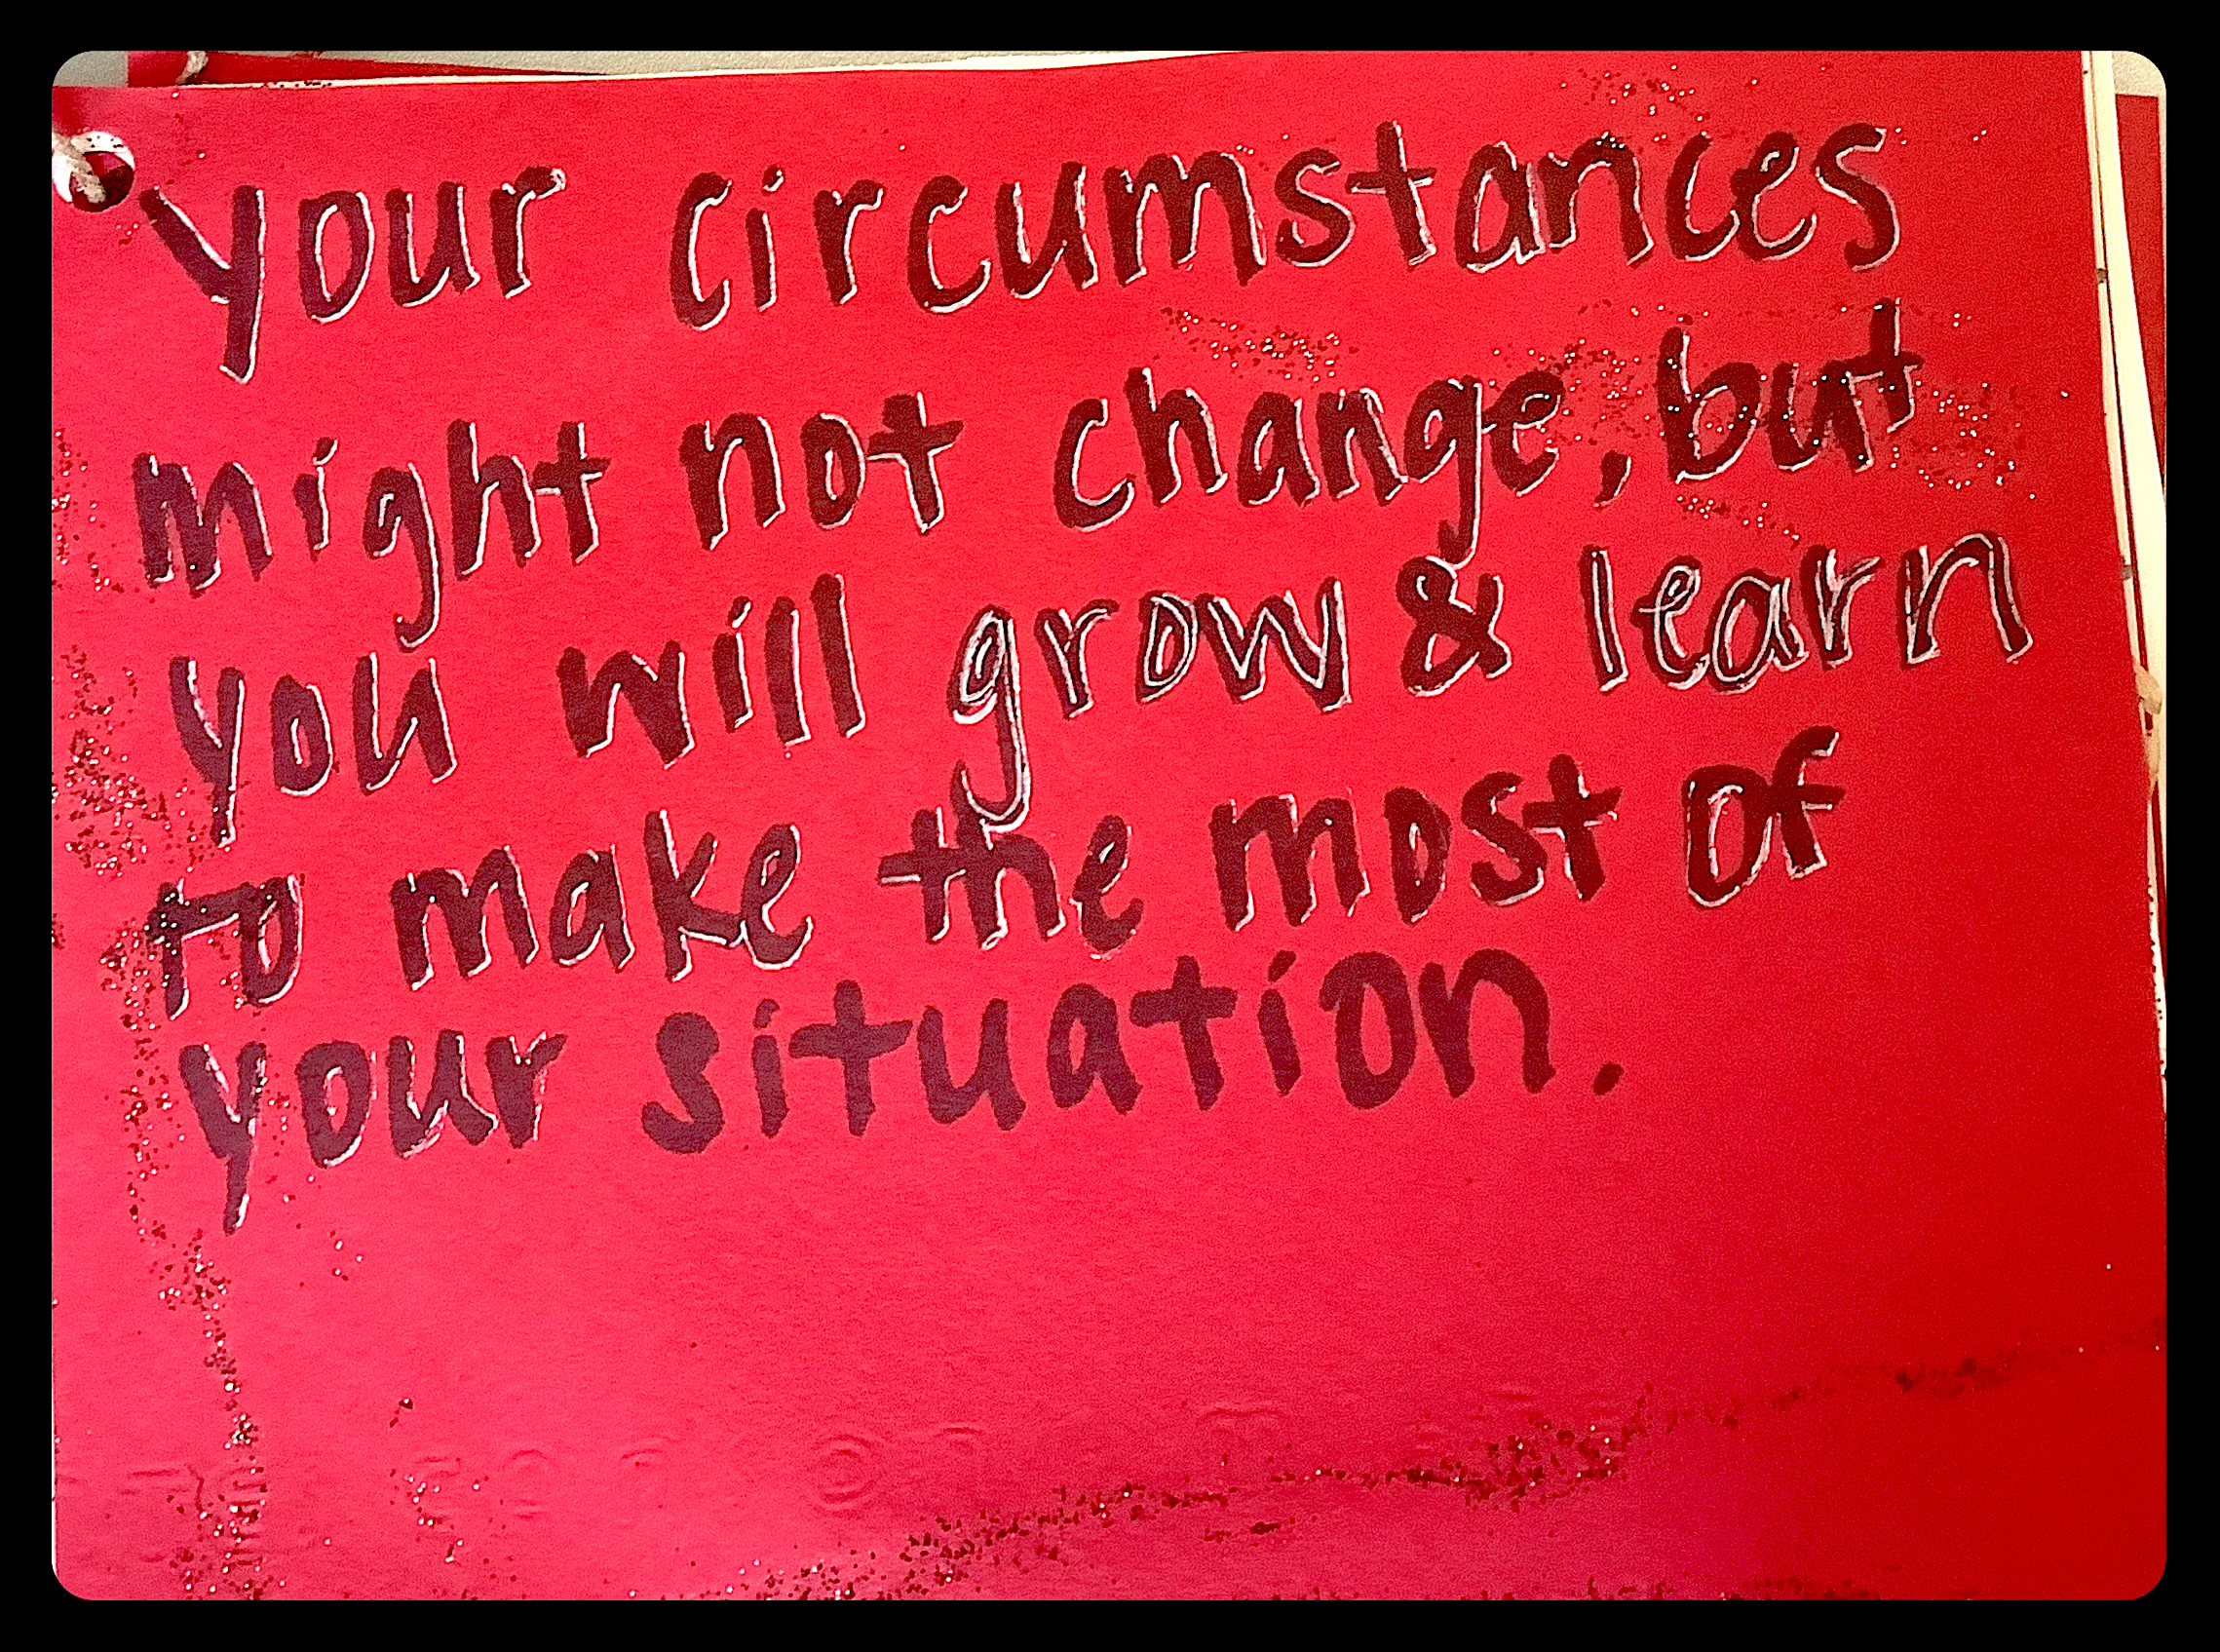 Your circumstances
might not change, but
you will grow & learn
to make the most of
your situation.